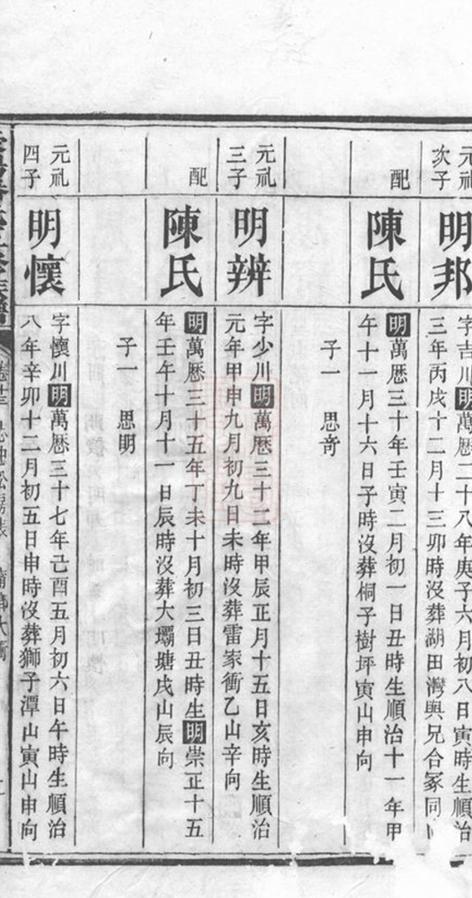 元礼
次子
明邦
字吉川明萬厯二十八年庚子六月初八日寅時生順治
三年丙戌十二月十三卯時沒葬湖田灣與兄合冢同
配
陳氏
明萬厯三十年壬寅二月初一日丑時生順治十一年甲
午十一月十六日子時沒葬桐子樹坪寅山申向
子一 思奇
元礼
三子
明辨
字少川明萬厯三十二年甲辰正月十五日亥時生順治
元年甲申九月初九日未時沒葬雷家衝乙山辛向
配
陳氏
明萬厯三十五年丁未十月初三日丑時生明崇正十五
年壬午十月十一日辰時沒葬大壩塘戌山辰向
子一 思明
元礼
四子
明懷
字懷川明萬厯三十七年己酉五月初六日午時生順治
八年辛卯十二月初五日申時沒葬獅子潭山寅山申向